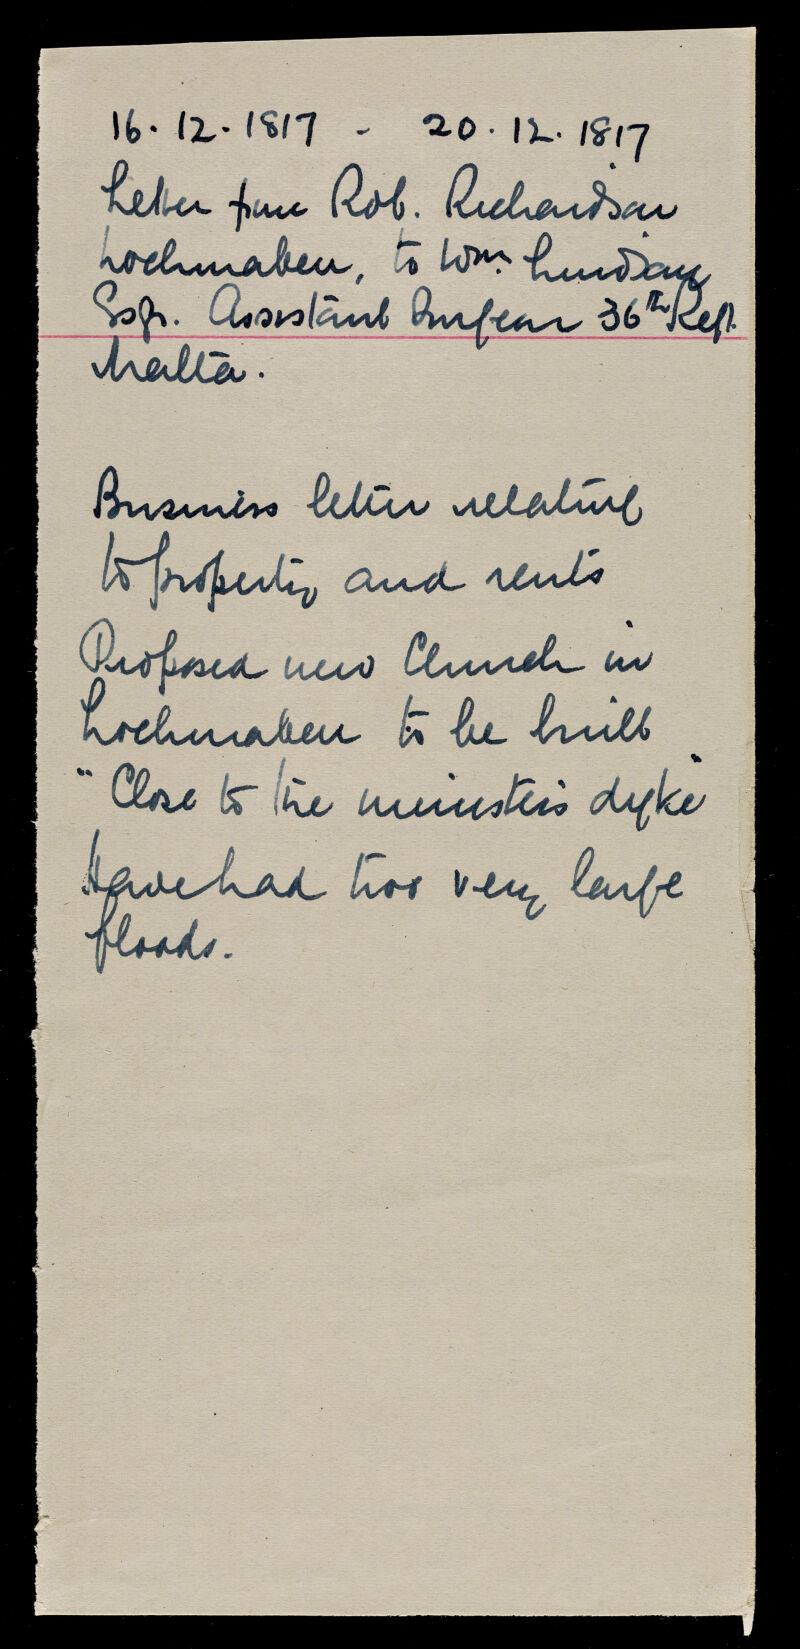 16.12.1817 - 20.12.1817
Letter from Rob. Richardson
Lochmaben, to Wm. Lindsay
Esqr. Assistant Surgeon 36th Regt.
Malta.
Business letter relating
to property and rents
Proposed new Church in
Lochmaben to be built
"Close to the minister's dyke"
Have had two very large
floods.